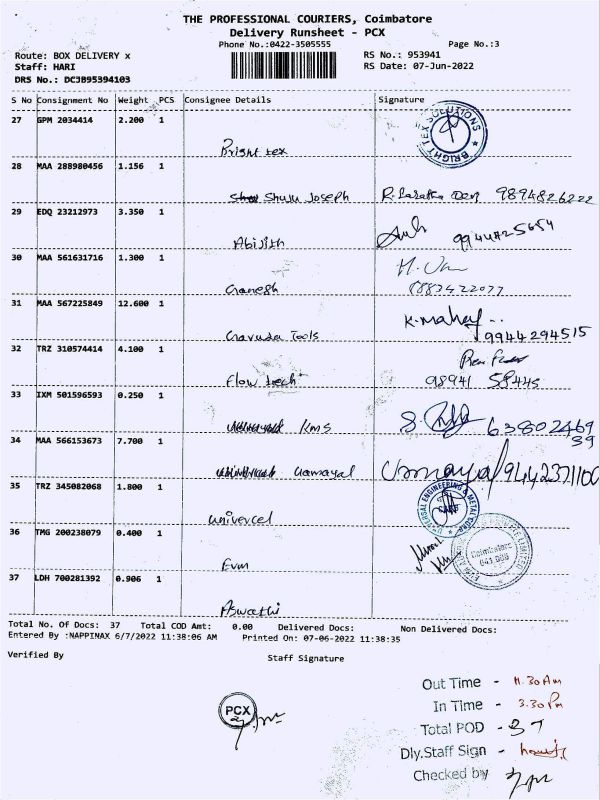 THE PROFESSIONAL COURIERS, Coimbatore
Delivery Runsheet - PCX
Phone No.:0422-3505555 Page No.:3
Route: BOX DELIVERY x RS No.: 953941
Staff: HARI RS Date: 07-Jun-2022
DRS No.: DCJB95394103
S No Consignment No Weight PCS Consignee Details Signature
27 GPM 2034414 2.200 1
Bright tex
BRIGHT TEX SOLUTIONS
28 MAA 288980456 1.156 1
Shuju Joseph 9894826222
29 EDQ 23212973 3.350 1
Abijith
30 MAA 561631716 1.300 1
Ganesh
31 MAA 567225849 12.600 1
Garuda Tools 9944294515
32 TRZ 310574414 4.100 1
Flow tech 98941 58445
33 IXM 501596593 0.250 1
KMS 63802469
39
34 MAA 566153673 7.700 1
Umayal 9442371100
35 TRZ 345082068 1.800 1
Univercel
UNIVERSAL ENGINEERING & METAL
36 TMG 200238079 0.400 1
Evm
Coimbatore
37 LDH 700281392 0.906 1
Aswathi
Total No. Of Docs: 37 Total COD Amt: 0.00 Delivered Docs: Non Delivered Docs:
Entered By :NAPPINAX 6/7/2022 11:38:06 AM Printed On: 07-06-2022 11:38:35
Verified By Staff Signature
PCX
Out Time - 11.30 Am
In Time - 3.30 Pm
Total POD - 37
Dly.Staff Sign -
Checked by